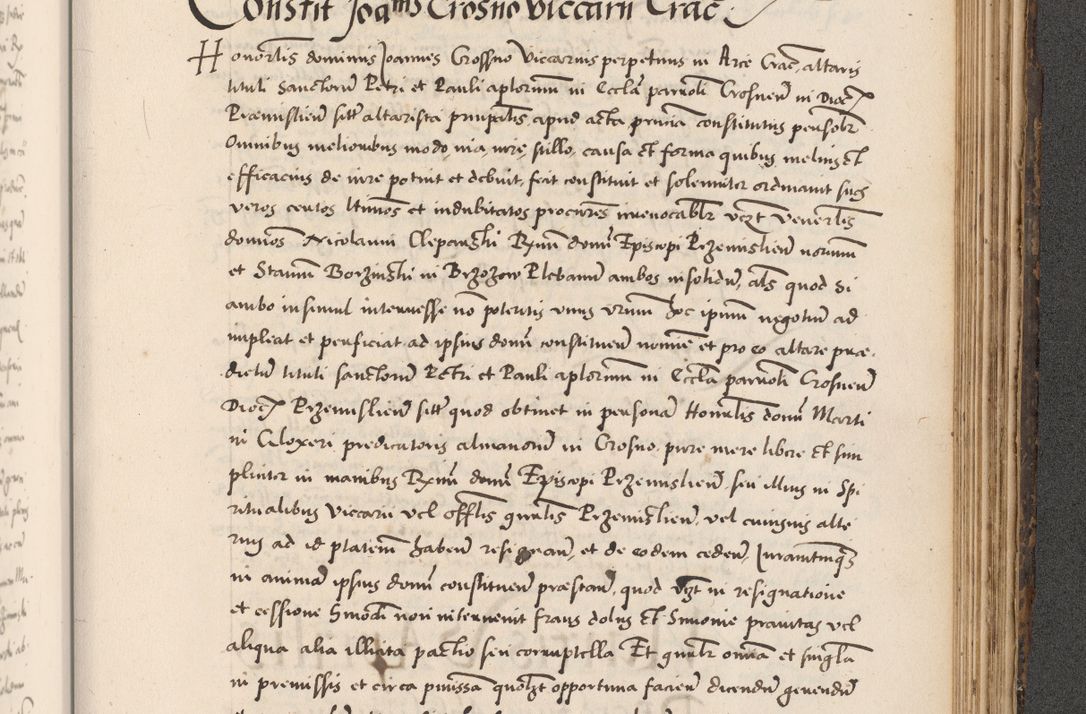 Constit Joanis Crosno Viccarii Crac
Honorlis dominus Joannes Crossno Viccarius perpetuus in Arce Crac, altaris
tituli Sanctoru Petri et Pauli aplorum in Eccla parroli Crosnen in Dioc
Præmislien sitt altarista principalis, apud acta prncia constitutus personlr
Omnibus melioribus modo, via, iure, stillo, causa et forma quibus melius et
efficacius de iure potuit et debuit, fecit constituit et solemniter ordinauit suos
veros certos ltimos et indubitatos procures irreuocablr vczt Venerles
dominos Nicolaum Cleparski Rxmi domi Episcopi Przemislien notarium
et Stanm Borzinski in Brzozow Plebanu ambos insolidu, als quod si
ambo insimul interuesse no poteritis vnus vrum hoc ipsum negotiu ad
impleat et perficiat ad ipsius domi constituen nomine et pro eo altare præ-
dictu tituli sanctoru Petri et Pauli aplorum in Eccla parroli Crosnen
Dioc Przemislien sitt quod obtinet in persona Honrlis domi Marti
ni Gloxeri predicatoris almanoru in Crosno, pure mere libere et sim
pliciter in manibus Rxmi domi Episcopi Przemislien, seu illius in Spi
ritualibus Viccarii vel offlis gnrlis Przemislien, vel cuiusuis alte
rius ad id ptatem haben resignan, et de eodem ceden, Juramentumqs
in anima ipsius domi constituen præstan, quod vczt in resignatione
et cessione hmodi non interuenit fraus dolus et Simonie prauitas vel
aliqua alia illicita pactio seu corruptella Et gnrlr omnia et singla
in premissis et circa pmissa quolzt opportuna facien dicendu gerendu